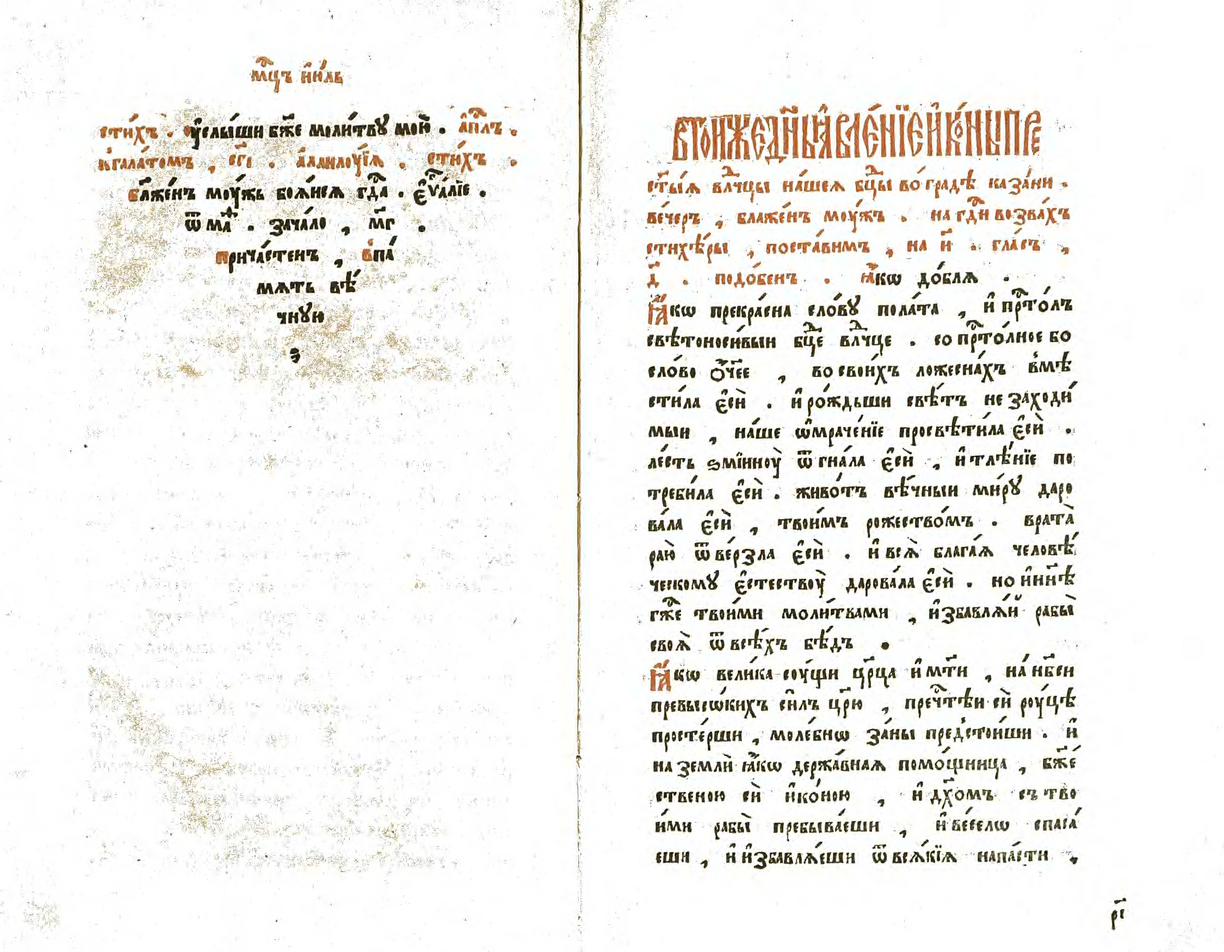 мⷭ҇цъ и҆ю́ль
сти́хъ . ᲂу҆слы́ши бж҃е моли́твꙋ мою̀ . а҆пⷭ҇лъ .
к̾гала́томъ , сг҃і . а҆ллилѹ́їа . сти́хъ .
бл҃же́нъ мѹ́жь боѧ́исѧ гдⷭ҇а . є҆ѵⷢ҇алїе .
ѿ маⷴ . зача́ло , мг҃ .
прича́стенъ , в̾па́
мѧть вѣ́
чнꙋю
в то́йже дн҃ь ꙗ҆вле́нїе и҆ко́ны пре
ст҃ы́ѧ влⷣчцы на́шеѧ бцⷣы во гра́дѣ каза́ни .
ве́черъ , блаже́нъ мѹ́жъ . на гдⷭ҇и возва́хъ
стихѣ́ры , поста́вимъ , на и҃ . гла́съ ,
д҃ . подо́бенъ . ꙗ҆́кѡ до́блѧ .
Ꙗ҆́кѡ прекра́сна сло́вꙋ пола́та , и҆ прⷭ҇то́лъ
свѣтоноси́выи бцⷣе влⷣчце . сопрⷭ҇то́лное бо
сло́во ѻ҆́ч҃ее , во свои́хъ ложесна́хъ в̾мѣ
сти́ла є҆сѝ . и҆ ро́ждьши свѣ́тъ не заходи́
мыи , на́ше ѡ҆мраче́нїе просвѣти́ла є҆сѝ .
ле́сть ѕмі́инѹ ѿгна́ла є҆сѝ , и҆ тлѣ́нїе по
треби́ла є҆сѝ . живо́тъ вѣ́чныи ми́рꙋ даро
ва́ла є҆сѝ , твои́мъ рожество́мъ . врата̀
раю̀ ѿве́рзла є҆сѝ . и҆ всѧ̀ блага́ѧ человѣ́
ческомꙋ є҆стествѹ̀ дарова́ла є҆сѝ . но и҆ нн҃ѣ
гжⷭ҇е твои́ми моли́твами , и҆збавлѧ́й рабы̀
своѧ̀ ѿ всѣ́хъ бѣ́дъ .
Ꙗ҆́кѡ вели́ка сѹ́щи црⷭ҇ца и҆ мт҃и , на нб҃си
превысѡ́кихъ си́лъ цр҃ю , пречⷭ҇тѣи сѝ рѹ́цѣ
просте́рши , моле́бнѡ за́ны предстои́ши . и҆
на землѝ ꙗ҆́кѡ держа́внаѧ помо́щница , бж҃е
ственою сѝ и҆ко́ною , и҆ дх҃омъ съ тво
и́ми рабы̀ пребыва́еши , и҆ ве́селѡ спаса́
еши , и҆ и҆збавлѧ́еши ѿ всѧ́кїѧ напа́сти ,
рі҃